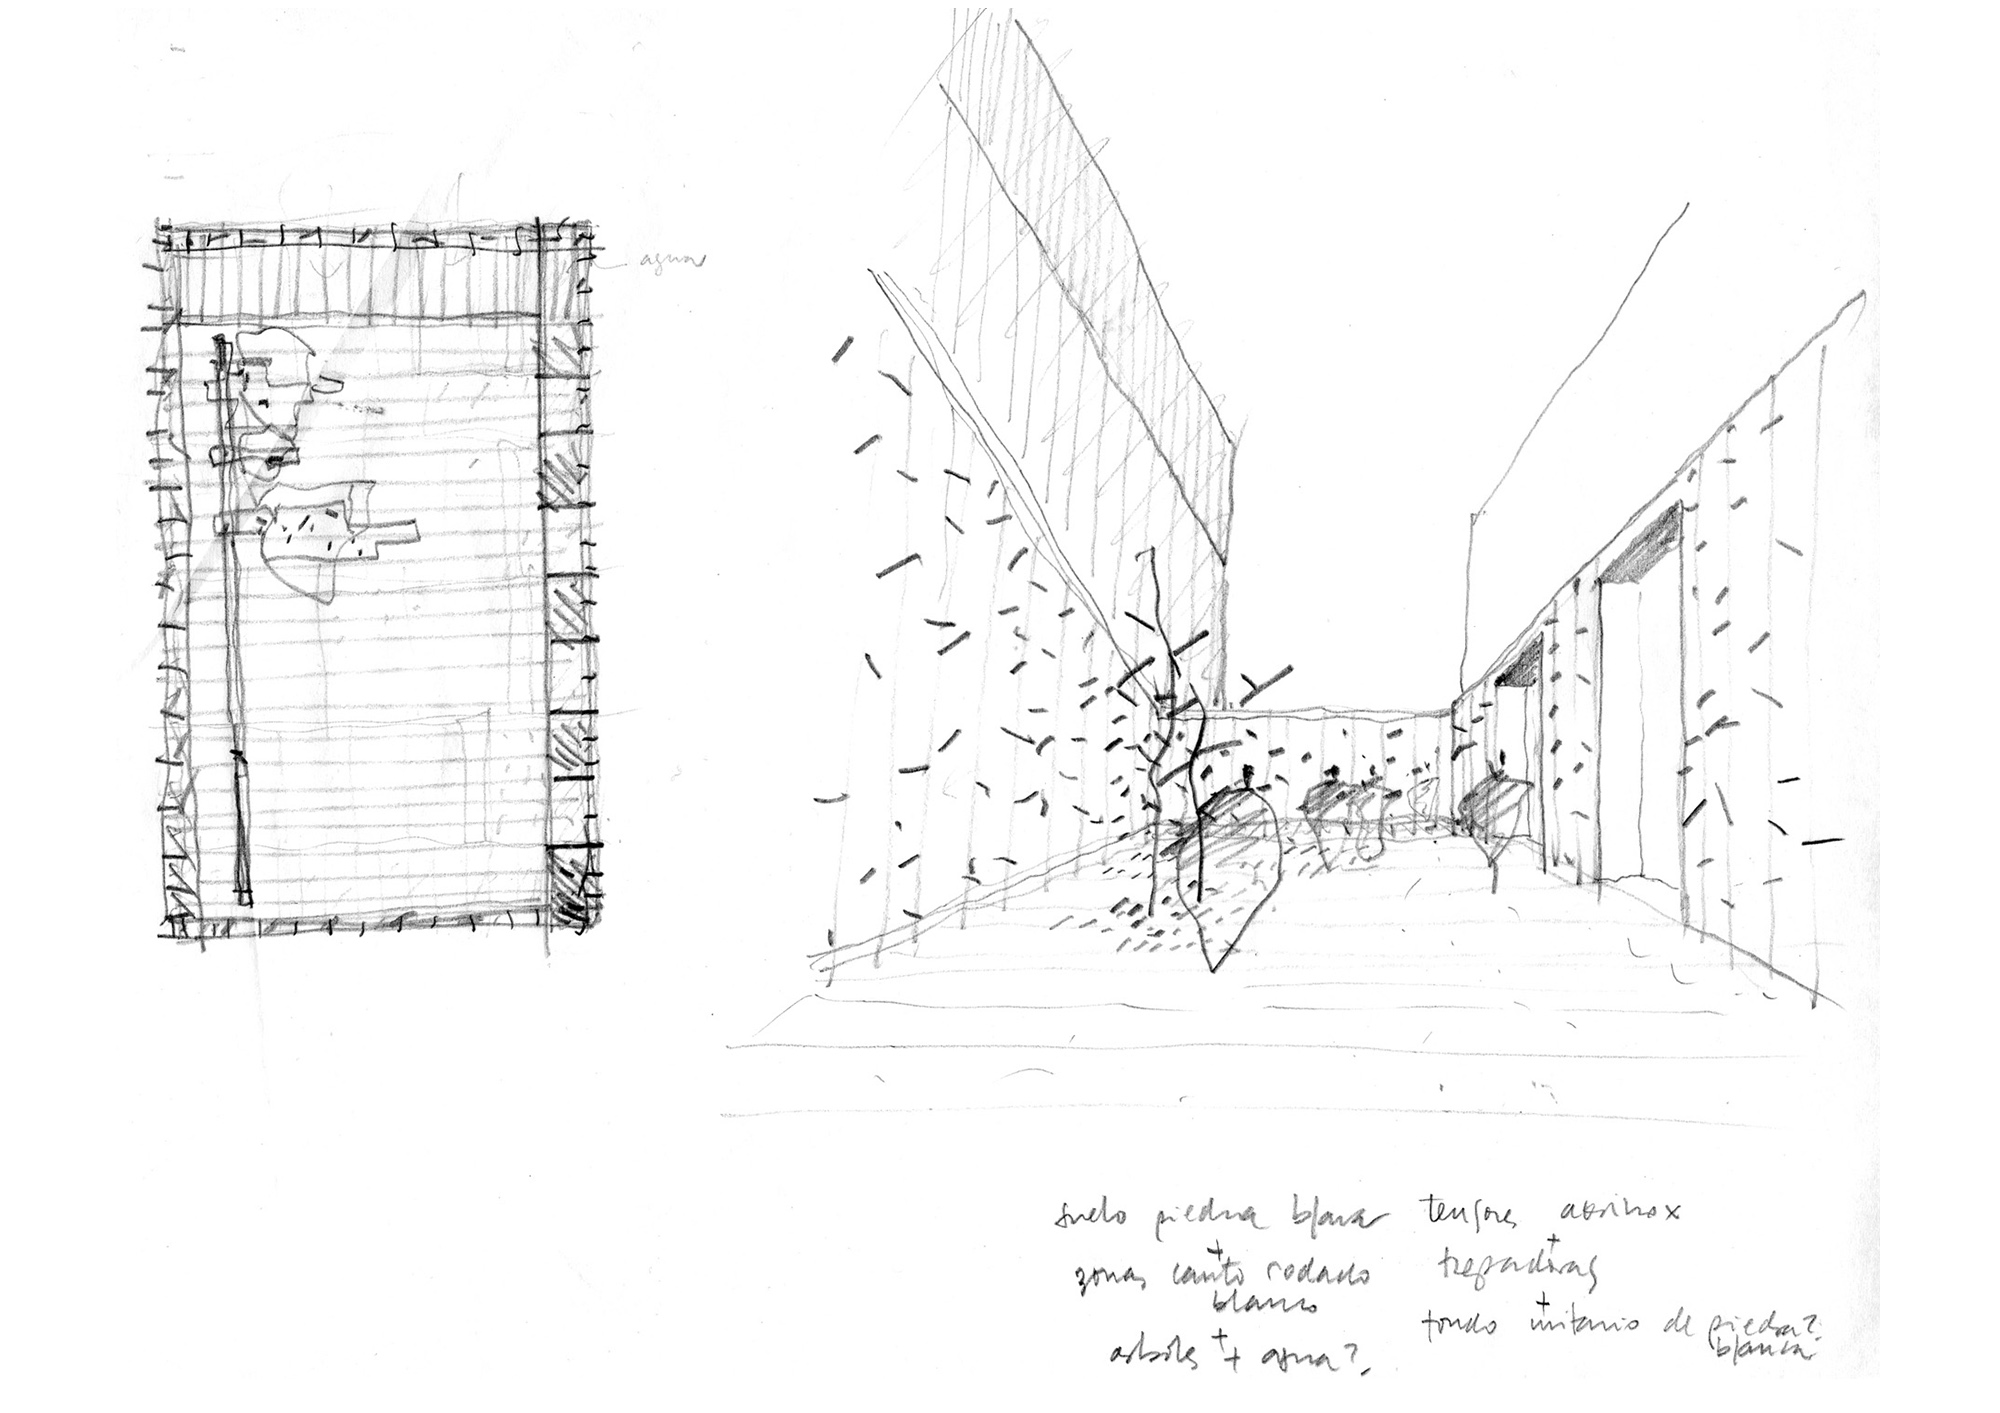 agua
suelo piedra blanca
+
zonas canto rodado
blanco
+
árboles + agua?
tensores ac inox
+
trepadoras
+
fondo unitario de piedra?
blanca